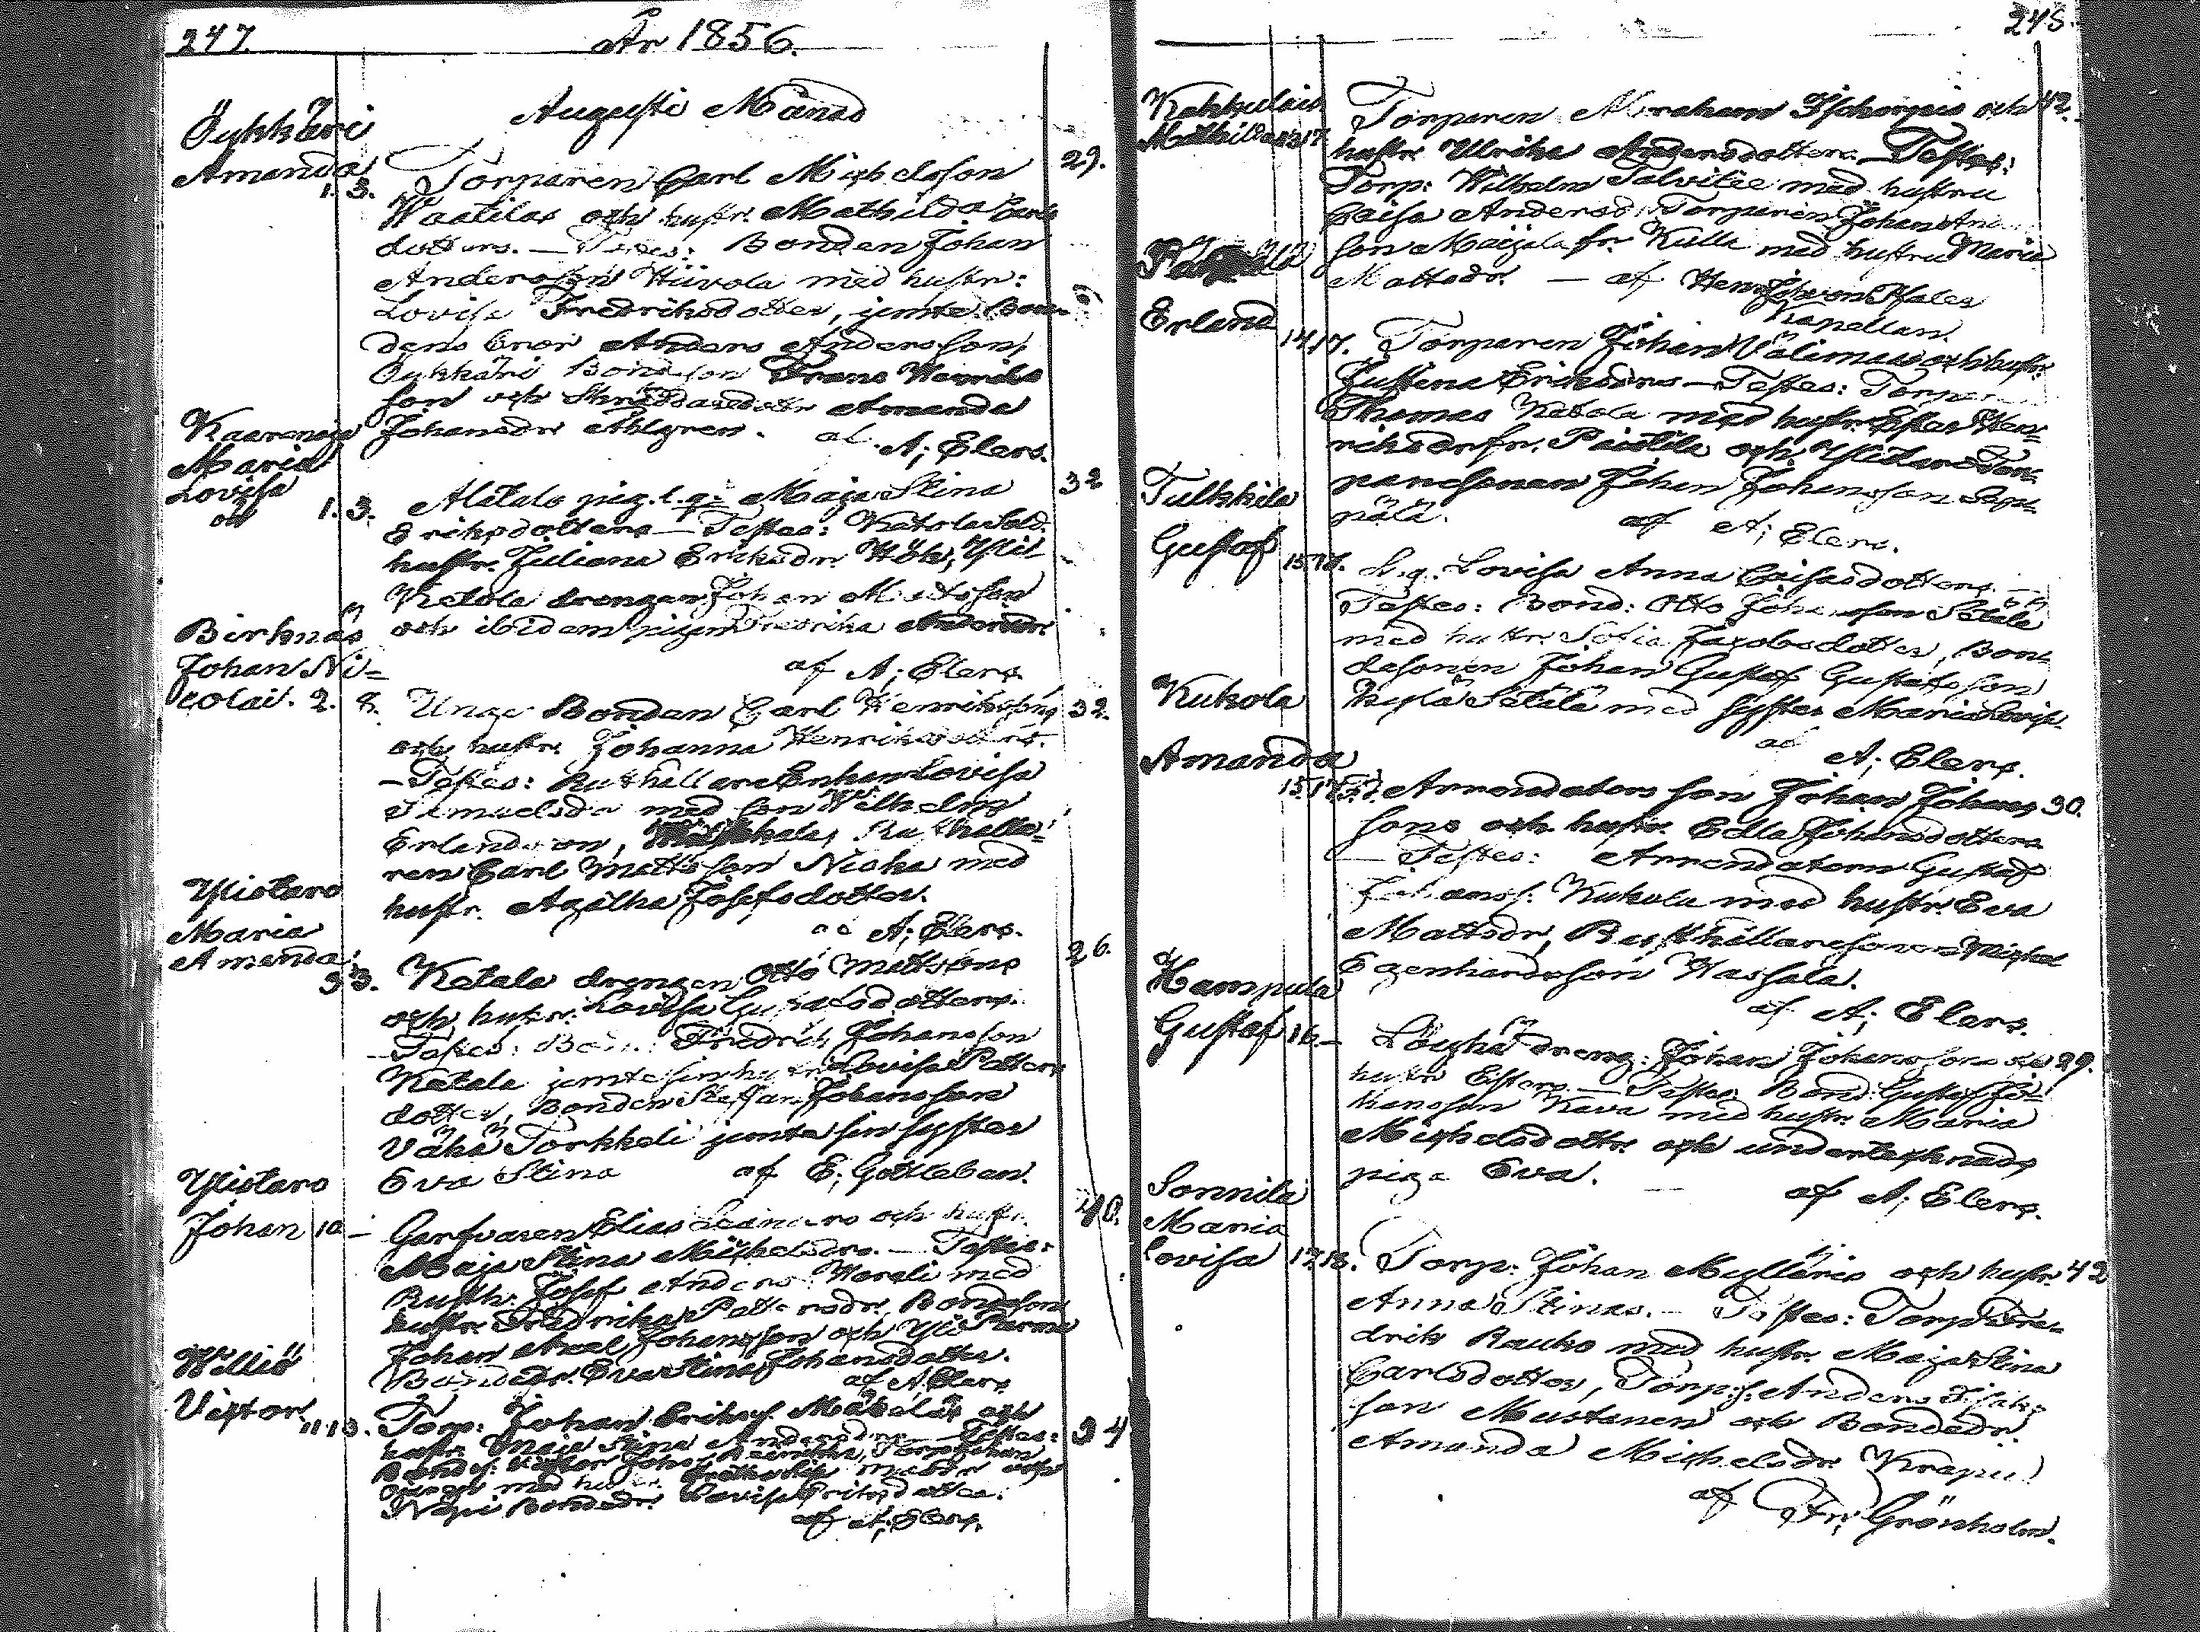 247.
År 1856.
Augusti Månad
Öykkäri
Amanda
1. 3.
Torparen Carl Michelsson
29.
Waatilas och hustr. Mathilda Carls
dotters. — Testes: Bonden Johan
Andersson Hiivola med hustr:
Lovisa Fredriksdotter, jemte Bon-
dens bror Anders Andersson,
Öykkäri Bond son Frans Henriks
son och Skräddaredottr Amanda
Johansdr Ahlgren. af A; Elers.
Kaarenoja
Maria
Lovisa
oä
1. 3.
Alatalo pig. l. q. Maja Stina
32
Eriksdotters — Testes: Katola Sold.
hustr. Juliana Eriksdr. Hök, Yli
Ketola drengen Johan Mattsson
och ibidem pigan Fredrika Andersdr.
af A; Elers
Birknäs
Johan Ni-
colai. 2. 8.
Unge Bonden Carl Henrikssons
32.
och hustr. Johanna Henriksdotters.
— Testes: Rusthållare Enkan Lovisa
Samuelsdr med son Wilhelm
Erlandsson, Rusthålla-
ren Carl Mattsson Niska med
hustr. Agatha Josefsdotter.
af A; Elers.
Ylistaro
Maria
Amanda.
3 3.
Katala drengen Otto Mattsons
26.
och hustr. Lovisa Gustafsdotters.
— Testes: Bond: Fredrik Johansson
Katala jemte sin hustr Lovisa Petters
dotter, Bonden Steffan Johansson
Vähä Torkkeli jemte sin syster
Eva Stina af E; Gottleben.
Ylistaro
Johan 10 —
Garfvaren Elias Leanders och hustr.
40.
Maja Stina Michelsdrs. — Testes:
Rusth. Josef Anders Warali med
hustr. Fredrika Pettersdr, Bondeson
Johan Axel Johansson och Yli Parma
Bondedr. Eva Stina Johansdotter.
af A. Elers
Hilliö
Victor
11 13.
Torp: Johan Eriks. Mäkeläs och
34
hustr. Maja Stina Andersdrs — Testes:
med hustr.
Bondedr. Lovisa Eriksdotter.
af A; Elers.
248.
Kakkulais
Mathilda 13 17.
Torparen Abraham Ischorpis och
42.
hustr. Ulrika Andersdotters — Testes:
Torp: Wilhelm Talvitie med hustru
Caisa Andersd. Torparen Johan Anders
son Maijala fr. Kulla med hustru Maria
Mattsdr. — af Henr Joh von Pfaler
Kapellan.
Erland
14 17.
Torparen Johan Välimaas och hustr.
Justina Eriksdrs — Testes: Torparen
Thomas Katola med hustr Ester Hen-
riksdr fr. Paatila och Ylistaro Tor-
paresonen Johan Johansson Sep-
pälä. af A; Elers.
Tulkkila
Gustaf
15 17.
L. q. Lovisa Anna Caisasdotters. —
Testes: Bond: Otto Johansson Sätälä
med hustr Sofia Jacobsdotter, Bon-
desonen Johan Gustaf Gustafsson
Kylä Sätälä med syster Maria Lovisa
af A; Elers.
Kukola
Amanda
15 17
Arrendators son Johan Johans
30.
sons och hustr. Edla Johansdotters
— Testes: Arrendatorn Gustaf
Johanss. Kukola med hustr. Eva
Mattsdr, Rusthållaresonen Michel
Egenhardsson Wassala.
af A; Elers.
Hampula
Gustaf 16. —
Löyhä dreng: Johan Johanssons och
29.
hustr Esters. — Testes Bond: Gustaf Jo-
hansson Kava med hustr. Maria
Michelsdottr. och undertecknads
piga Eva. — af A; Elers.
Sonnila
Maria
Lovisa 17 18.
Torp: Johan Mylläris och hustr.
42
Anna Stinas. — Testes: Torp: Fre-
drik Rauko med hustr. Maja Stina
Carlsdotter, Torp:s. Anders Isaks
son Mustanen och Bondedr.
Amanda Michelsdr Krapi
af Fr; Grönholm.